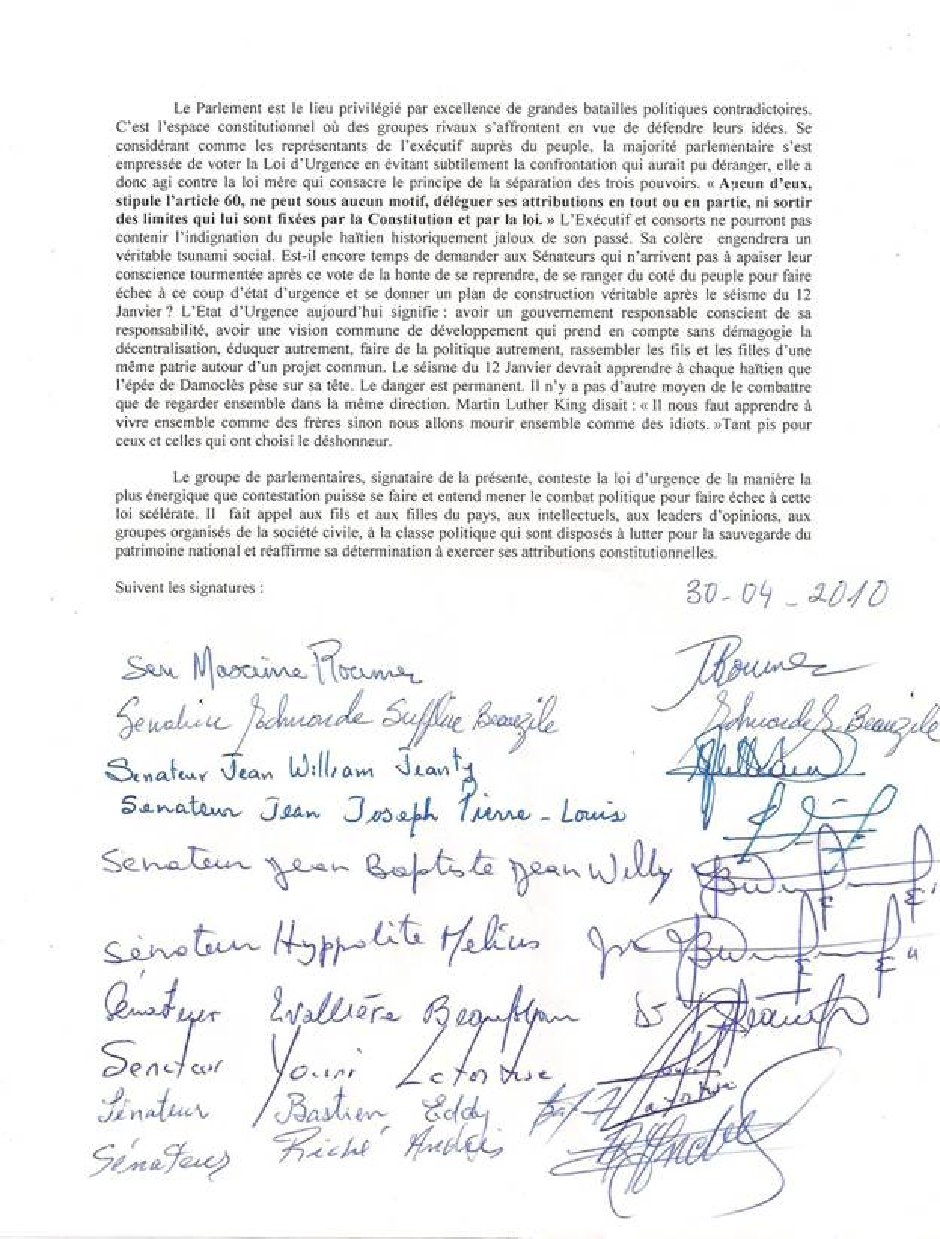 Le Parlement est le lieu privilégié par excellence de grandes batailles politiques contradictoires.
C'est l'espace constitutionnel où des groupes rivaux s'affrontent en vue de défendre leurs idées. Se
considérant comme les représentants de l'exécutif auprès du peuple, la majorité parlementaire s'est
empressée de voter la Loi d'Urgence en évitant subtilement la confrontation qui aurait pu déranger, elle a
donc agi contre la loi mère qui consacre le principe de la séparation des trois pouvoirs. « Aucun d'eux,
stipule l'article 60, ne peut sous aucun motif, déléguer ses attributions en tout ou en partie, ni sortir
des limites qui lui sont fixées par la Constitution et par la loi. » L'Exécutif et consorts ne pourront pas
contenir l'indignation du peuple haïtien historiquement jaloux de son passé. Sa colère engendrera un
véritable tsunami social. Est-il encore temps de demander aux Sénateurs qui n'arrivent pas à apaiser leur
conscience tourmentée après ce vote de la honte de se reprendre, de se ranger du coté du peuple pour faire
échec à ce coup d'état d'urgence et se donner un plan de construction véritable après le séisme du 12
Janvier ? L'Etat d'Urgence aujourd'hui signifie : avoir un gouvernement responsable conscient de sa
responsabilité, avoir une vision commune de développement qui prend en compte sans démagogie la
décentralisation, éduquer autrement, faire de la politique autrement, rassembler les fils et les filles d'une
même patrie autour d'un projet commun. Le séisme du 12 Janvier devrait apprendre à chaque haïtien que
l'épée de Damoclès pèse sur sa tête. Le danger est permanent. Il n'y a pas d'autre moyen de le combattre
que de regarder ensemble dans la même direction. Martin Luther King disait : « Il nous faut apprendre à
vivre ensemble comme des frères sinon nous allons mourir ensemble comme des idiots. »Tant pis pour
ceux et celles qui ont choisi le déshonneur.
Le groupe de parlementaires, signataire de la présente, conteste la loi d'urgence de la manière la
plus énergique que contestation puisse se faire et entend mener le combat politique pour faire échec à cette
loi scélérate. Il fait appel aux fils et aux filles du pays, aux intellectuels, aux leaders d'opinions, aux
groupes organisés de la société civile, à la classe politique qui sont disposés à lutter pour la sauvegarde du
patrimoine national et réaffirme sa détermination à exercer ses attributions constitutionnelles.
Suivent les signatures :
30-04-2010
Sen Maxime Roumer
Senatrice Edmonde Supplice Beauzile Edmonde S. Beauzile
Senateur Jean William Jeanty
Senateur Jean Joseph Pierre-Louis
Senateur Jean Baptiste Jean Willy
Sénateur Hyppolite Melius
Senateur Evallière Beauplan
Senateur Youri Latortue
Sénateur Bastien Eddy
Sénateur Riché Andris